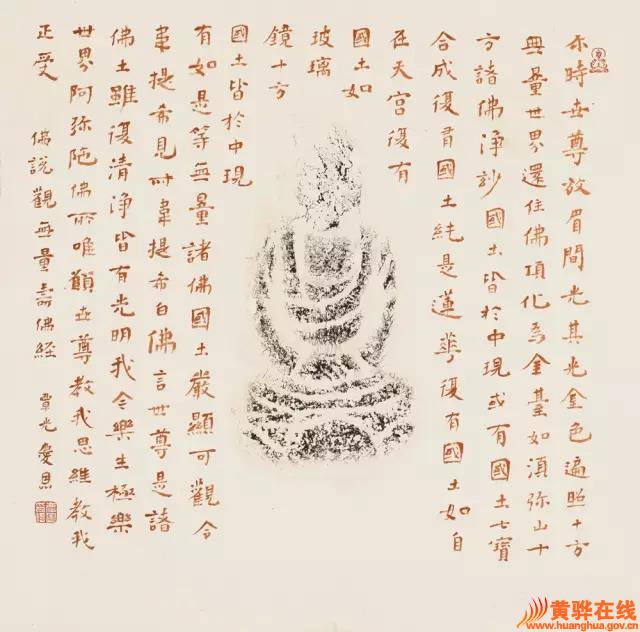 尒時世尊放眉間光其光金色遍照十方
無量世界還住佛頂化為金臺如須弥山十
方諸佛淨妙國土皆於中現或有國土七寶
合成復有國土純是蓮華復有國土如自
在天宮復有
國土如
玻璃
鏡十方
國土皆於中現
有如是等無量諸佛國土嚴顯可觀令
韋提希見時韋提希白佛言世尊是諸
佛土雖復清淨皆有光明我今樂生極樂
世界阿弥陀佛所唯願世尊教我思維教我
正受 佛說觀無量壽佛経
黄骅在线
www.huanghua.gov.cn